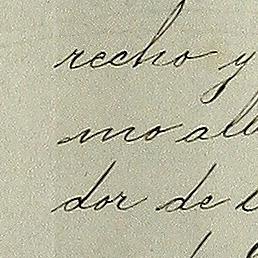 recho y
mo alb
dor de l